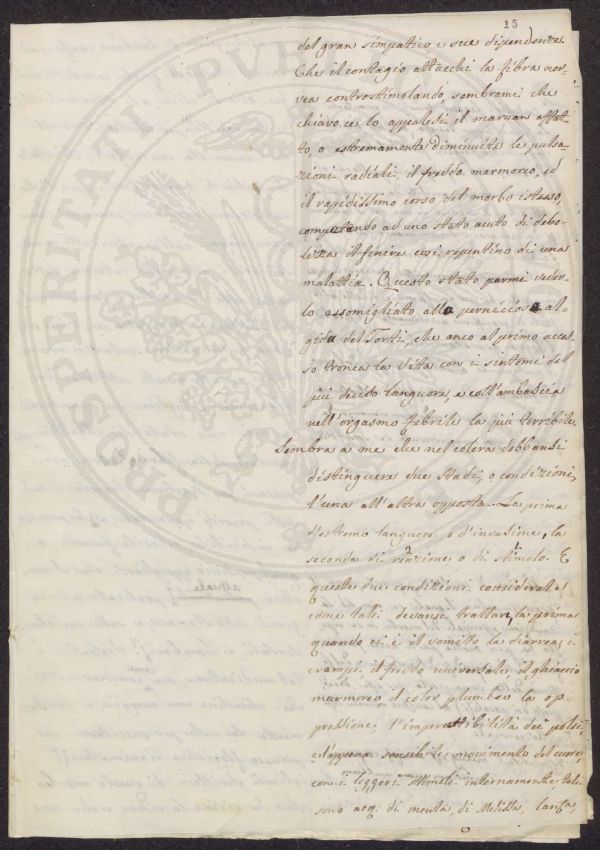 15
del gran simpatico e sue dipendenze.
Che il contagio attacchi la fibra ner-
vea controstimolando, sembrami che
chiaro ce lo appalesi il mancar affat-
to, o estremamente diminuite le pulsa-
zioni radiali, il freddo marmoreo, ed
il rapidissimo corso del morbo istesso,
competendo ad uno stato acuto di debo-
lezza il finire così repentino di una
malattia. Questo stato parmi veder-
lo assomigliato alla perniciosa al-
gida del Torti, che anco al primo acces-
so tronca la vita con i sintomi del
più deciso languore, e coll'ambascia
nell'orgasmo febrile la più terribile.
Sembra a me che nel colera debbansi
distinguere due stadj, o condizioni,
l'una all'altra opposta. La prima
d'estremo languore o d'invasione, la
seconda di reazione o di stimolo. E
queste due condizioni considerate
come tali devansi trattare, la prima
quando ci è il vomito la diarrea, i
crampi, il freddo universale, il ghiaccio
marmoreo il color plumbeo la op-
pressione, l'impercettibilità dei polsi,
e l'appena sensibile movimento del cuore,
con i leggeri stimoli internamente, tali
sono acq: di menta, di Melissa,
attuale
PROSPERITATI PVB